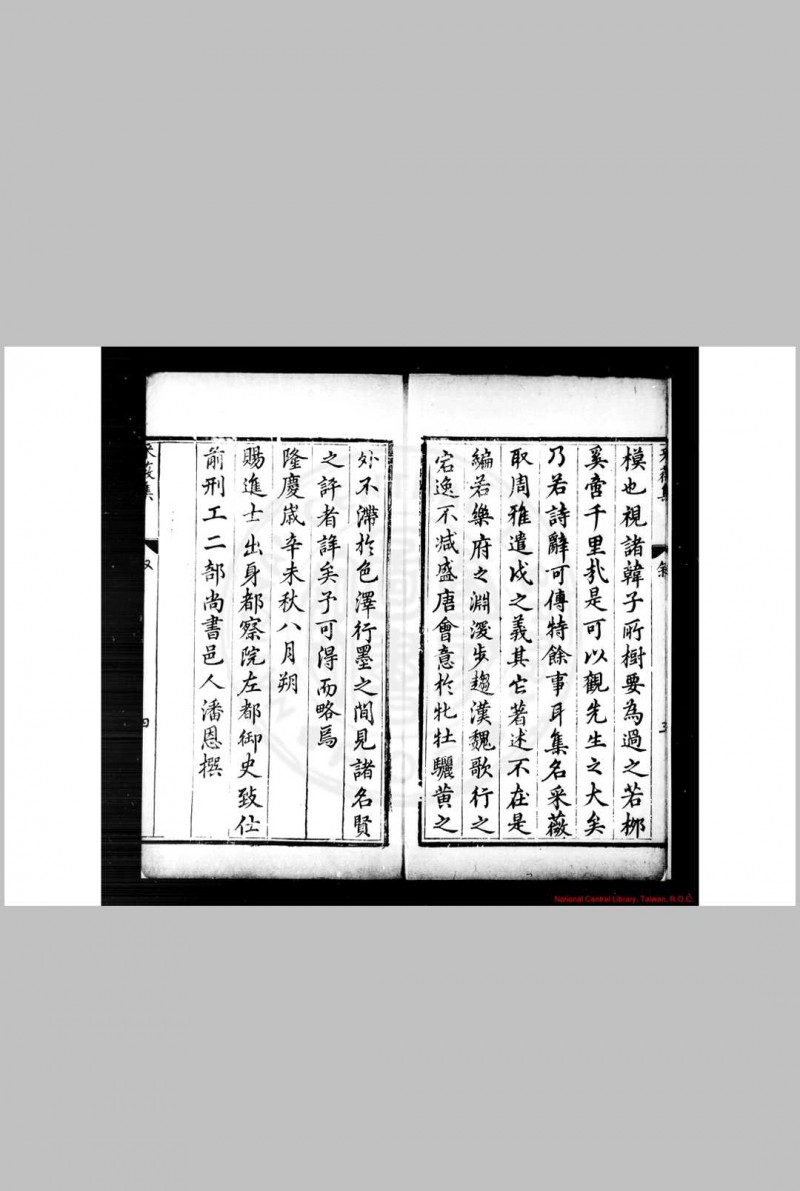 模也視諸韓子所樹要為過之若柳
奚啻千里哉是可以觀先生之大矣
乃若詩辭可傳特餘事耳集名采薇
取周雅遣戍之義其它著述不在是
編若樂府之淵邃步趨漢魏歌行之
宕逸不减盛唐會意於牝牡驪黄之
外不滯於色澤行墨之間見諸名賢
之評者詳矣予可得而略焉
隆慶歳辛未秋八月朔
賜進士出身都察院左都御史致仕
前刑工二部尚書邑人潘恩撰
采薇集
四
National Central Library, Taiwan, R.O.C.